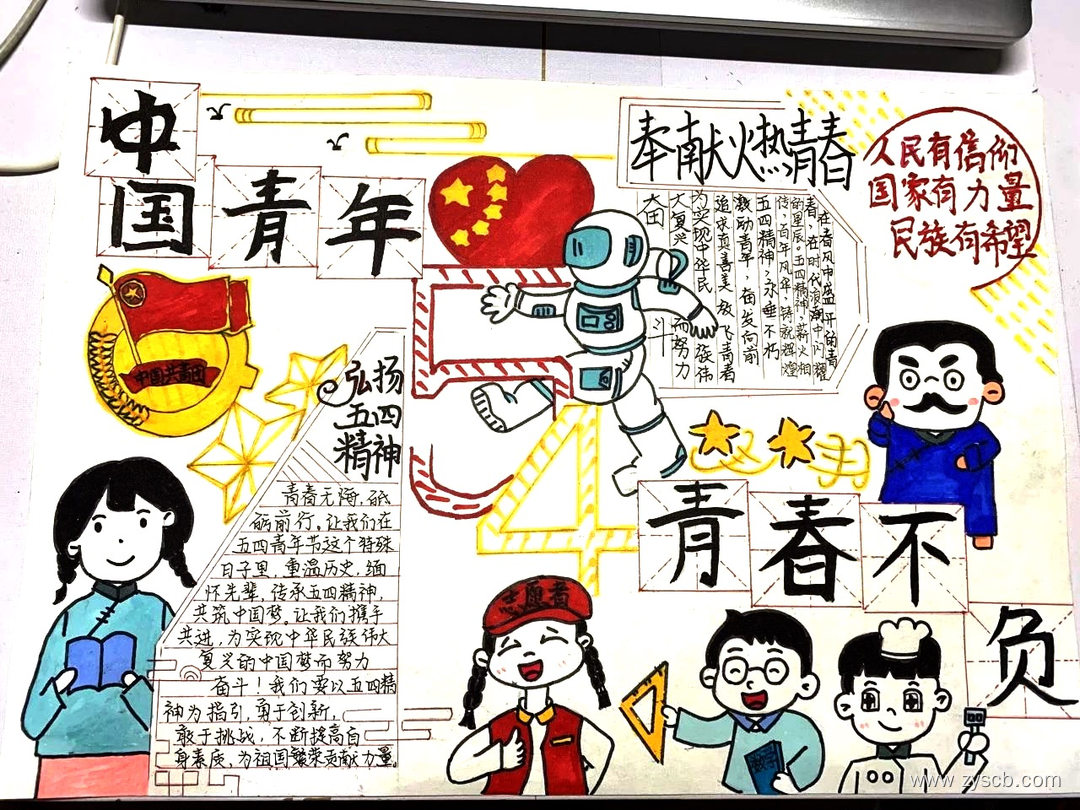 中
国青年
奉献火热青春
人民有信仰
国家有力量
民族有希望
在春风中盛开的青
春，在时代浪潮中闪耀
的星辰。五四精神，薪火相
传，百年风华，铸就辉煌
五四精神，永垂不朽
激励青年，奋发向前
追求真善美 放飞青春
为实现中华民族伟
大复兴 而努力
奋斗
中国共青团
弘扬
五四
精神
青春无悔，砥
砺前行。让我们在
五四青年节这个特殊
日子里，重温历史，缅
怀先辈，传承五四精神，
共筑中国梦。让我们携手
共进，为实现中华民族伟大
复兴的中国梦而努力
奋斗！我们要以五四精
神为指引，勇于创新，
敢于挑战，不断提高自
身素质，为祖国繁荣贡献力量。
54
青春不
负
志愿者
www.zyscb.com